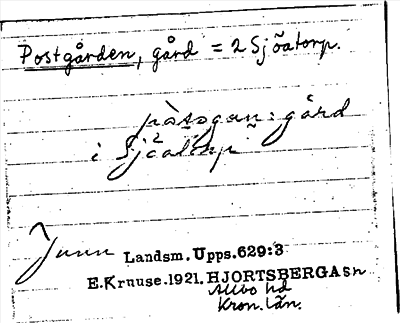 Postgården, gård = 2 Sjöatorp.
gård
i Sjöatorp
Landsm. Upps. 629:3
E. Kruuse. 1921. HJORTSBERGA sn
Allbo hd
Kron. län.